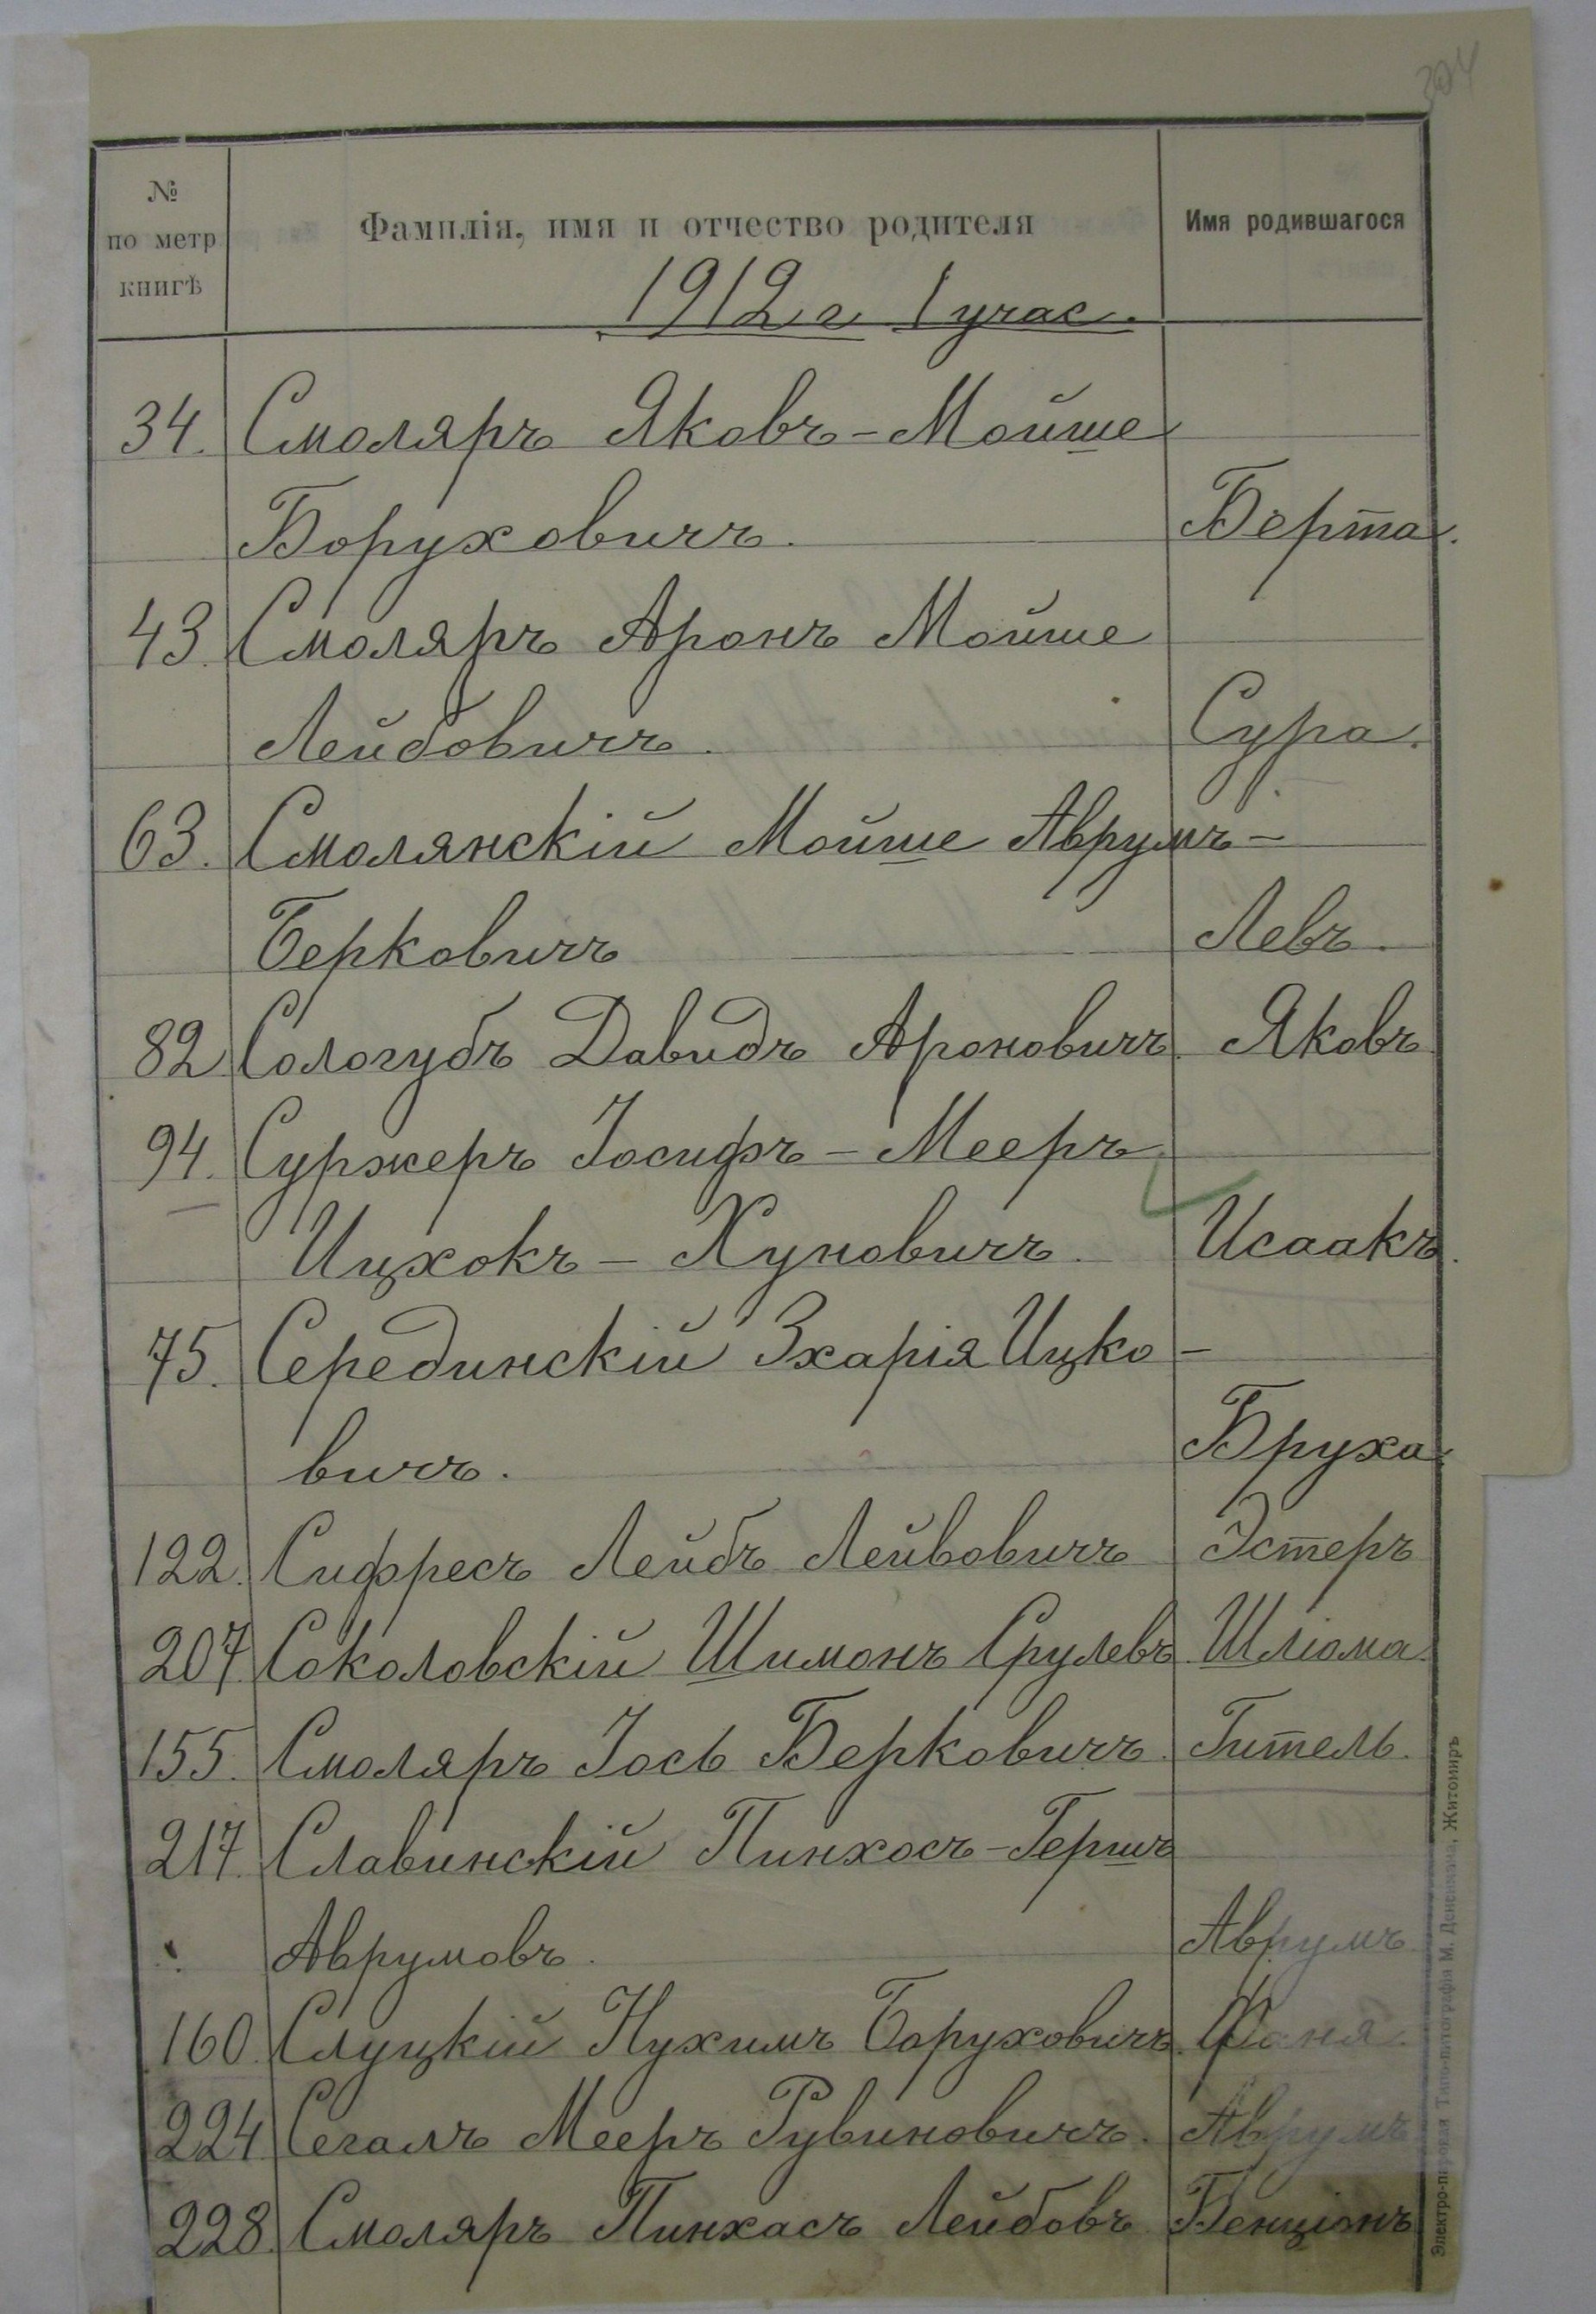 204
№
по метр
книгѣ
Фамилія, имя и отчество родителя
Имя родившагося
1912 г 1 учас.
34. Смоляръ Яковъ-Мойше
Боруховичъ. Берта.
43. Смоляръ Аронъ Мойше
Лейбовичъ. Сура.
63. Смолянскій Мойше Аврумъ-
Берковичъ Левъ.
82 Сологубъ Давидъ Ароновичъ. Яковъ
94. Суржеръ Іосифъ-Мееръ
Ицхокъ-Хуновичъ. Исаакъ.
75. Серединскій Зхарія Ицко-
вичъ. Бруха.
122. Сифресъ Лейбъ Лейвовичъ Эстеръ
207. Соколовскій Шимонъ Срулевъ Шліома.
155. Смоляръ Іось Берковичъ. Гитель.
217. Славинскій Пинхосъ-Гершъ
Аврумовъ. Аврумъ
160. Слуцкій Нухимъ Боруховичъ. Фаня.
224. Сегалъ Мееръ Рувиновичъ. Аврумъ
228. Смоляръ Пинхасъ Лейбовъ Бенціонъ
Житомиръ